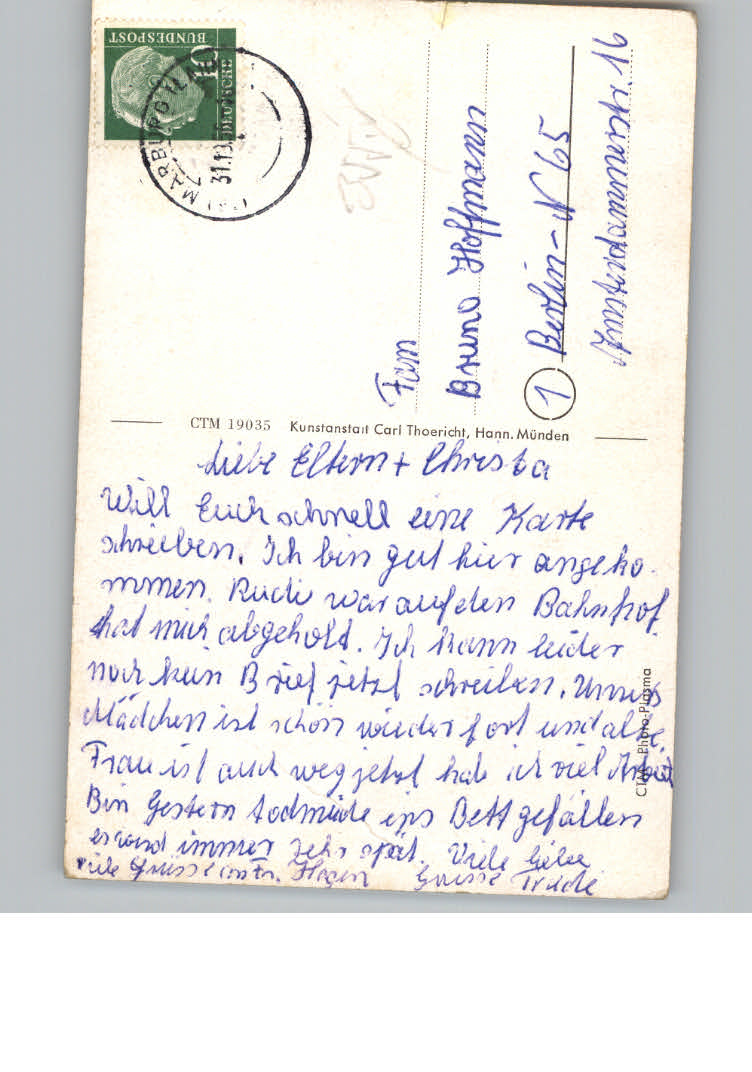 DEUTSCHE
BUNDESPOST
MARBURG (LAHN)
31.10.
Fam
Bruno Hoffmann
1 Berlin - N 65
Amsterdammerstr 16
CTM 19035 Kunstanstalt Carl Thoericht, Hann. Münden
CTM-Photo-Plasma
Liebe Eltern + Christa
Will Euch schnell eine Karte
schreiben. Ich bin gut hier angeko-
mmen. Rudi war auf den Bahnhof
hat mich abgeholt. Ich kann leider
noch kein Brief jetzt schreiben. Unser
Mädchen ist schon wieder fort und alte
Frau ist auch weg jetzt habe ich viel Arbeit
Bin Gestern todmüde ins Bett gefallen
es wird immer sehr spät. Viele liebe
Grüsse Trude
viele Grüsse von Fr. Hagen